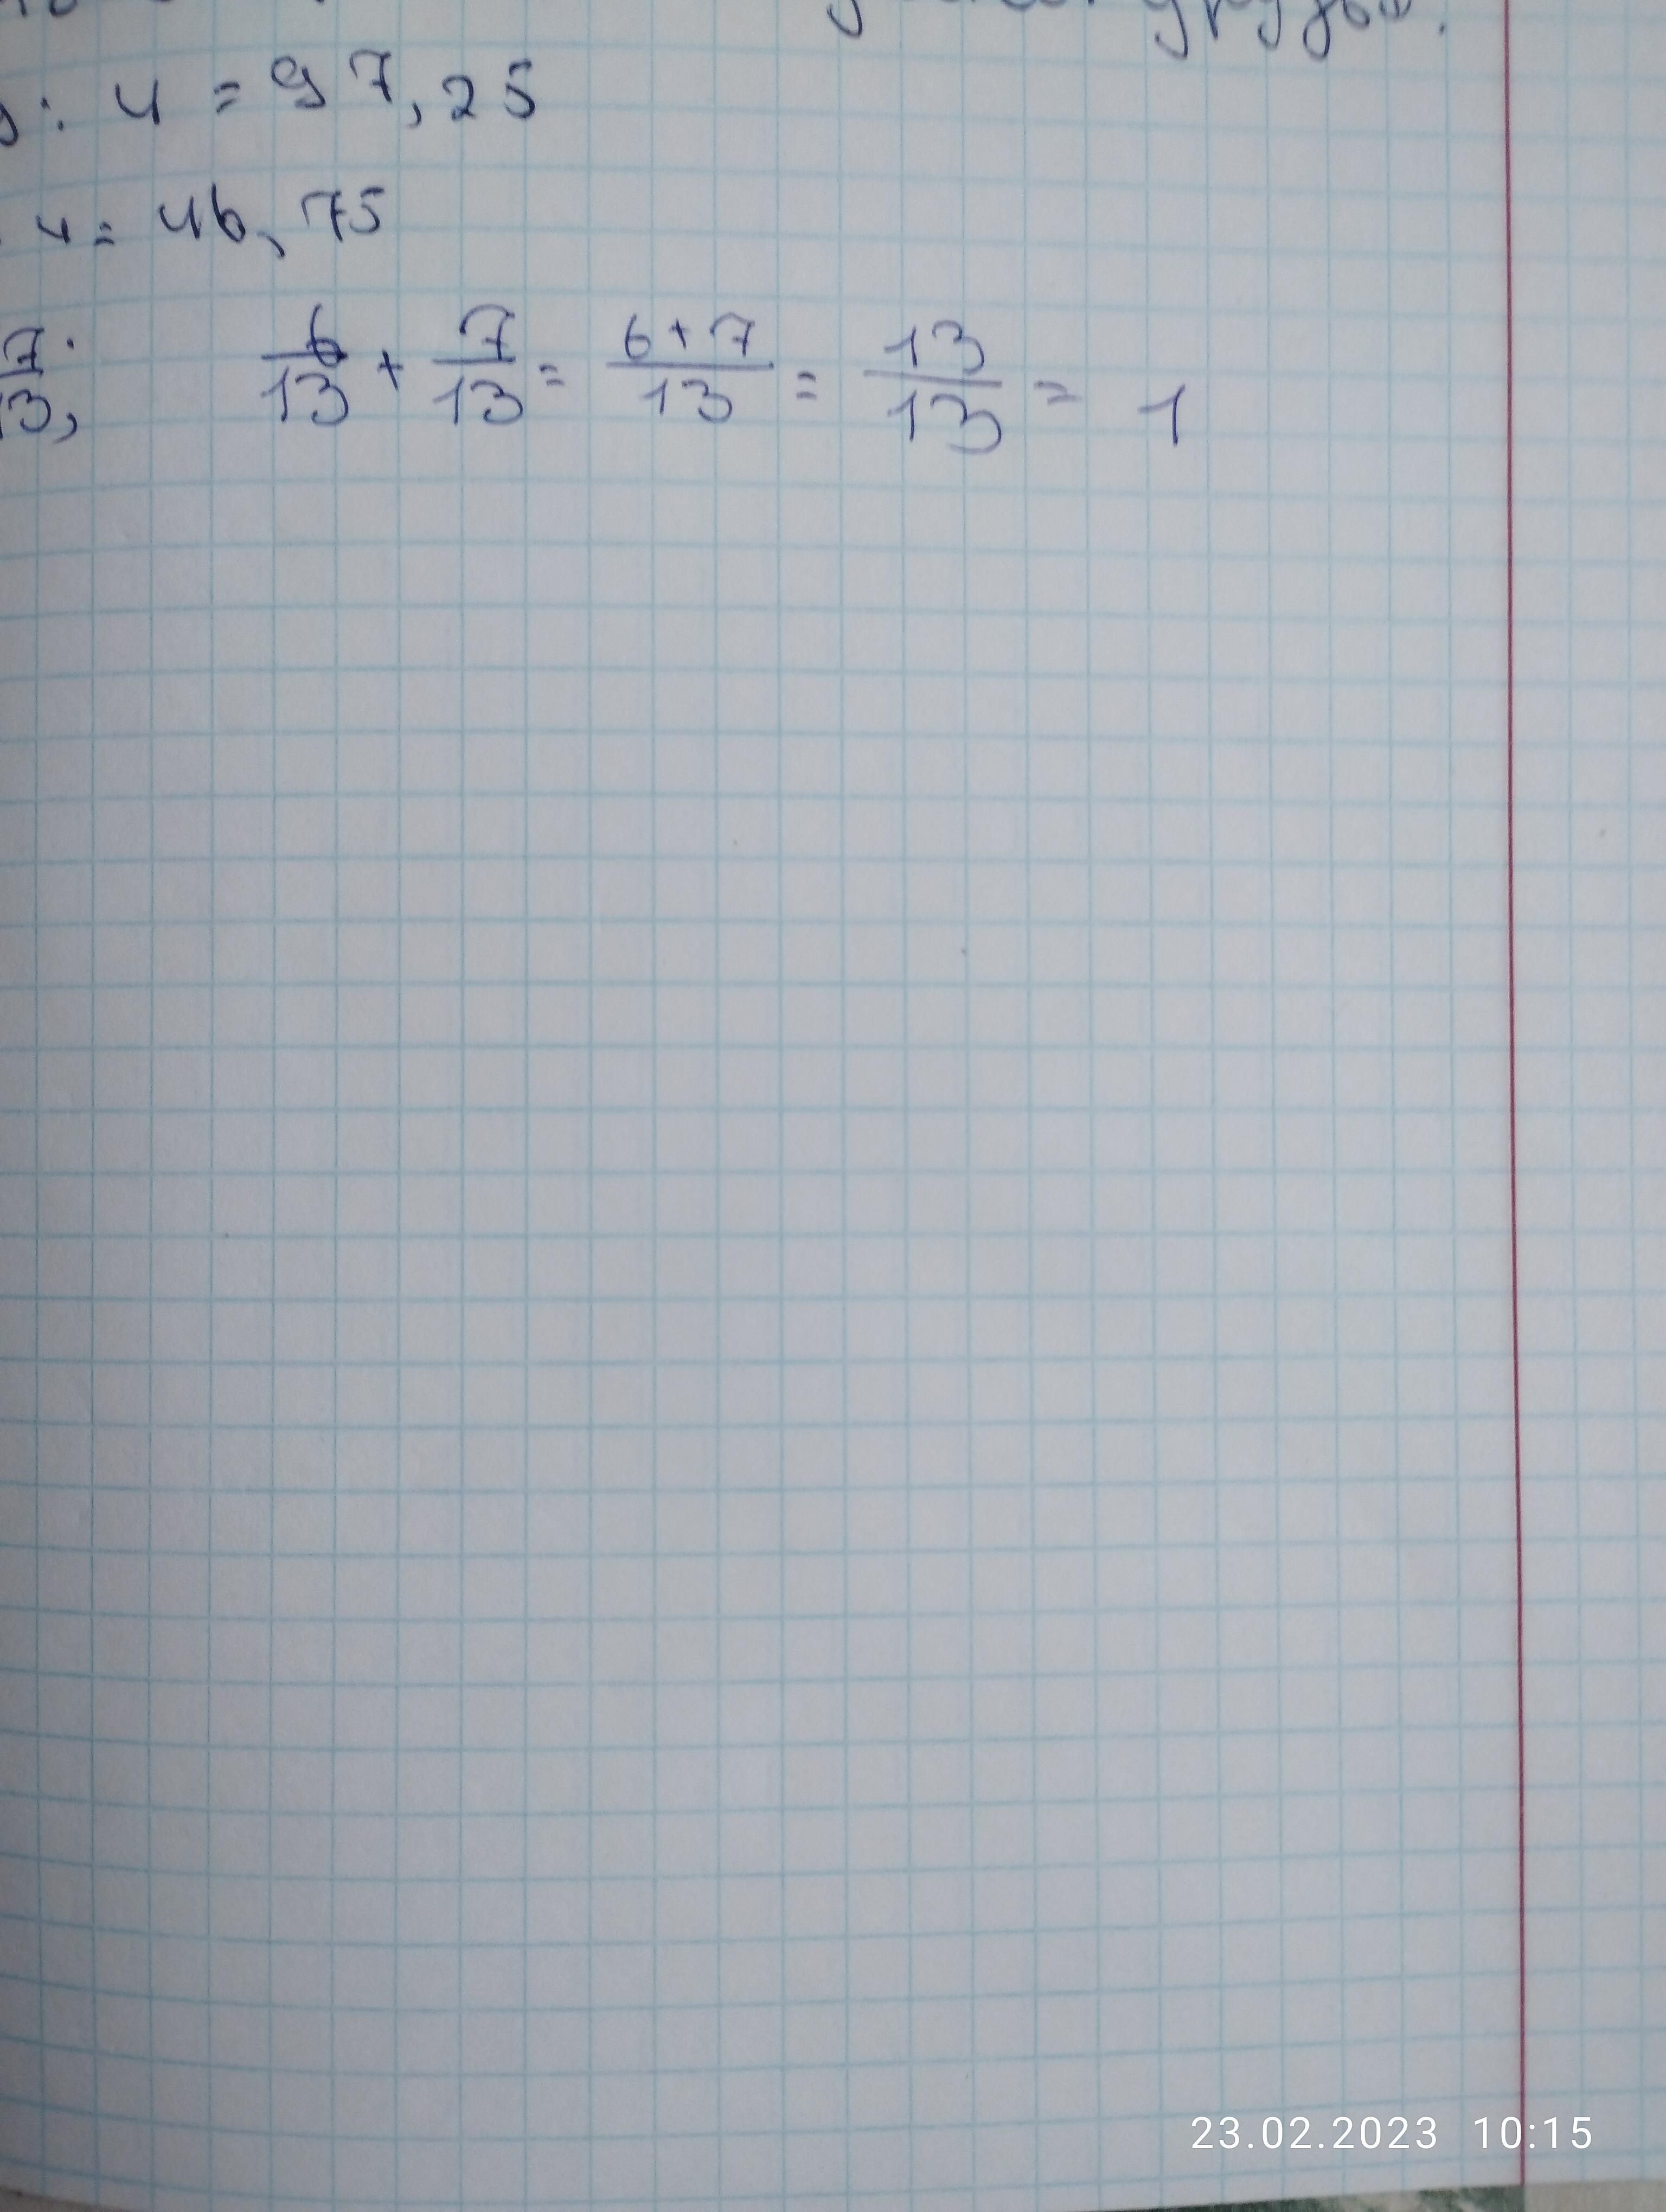 : 4 = 97,25
4 = 46,75
7/13; 6/13 + 7/13 = 6+7/13 = 13/13 = 1
23.02.2023 10:15